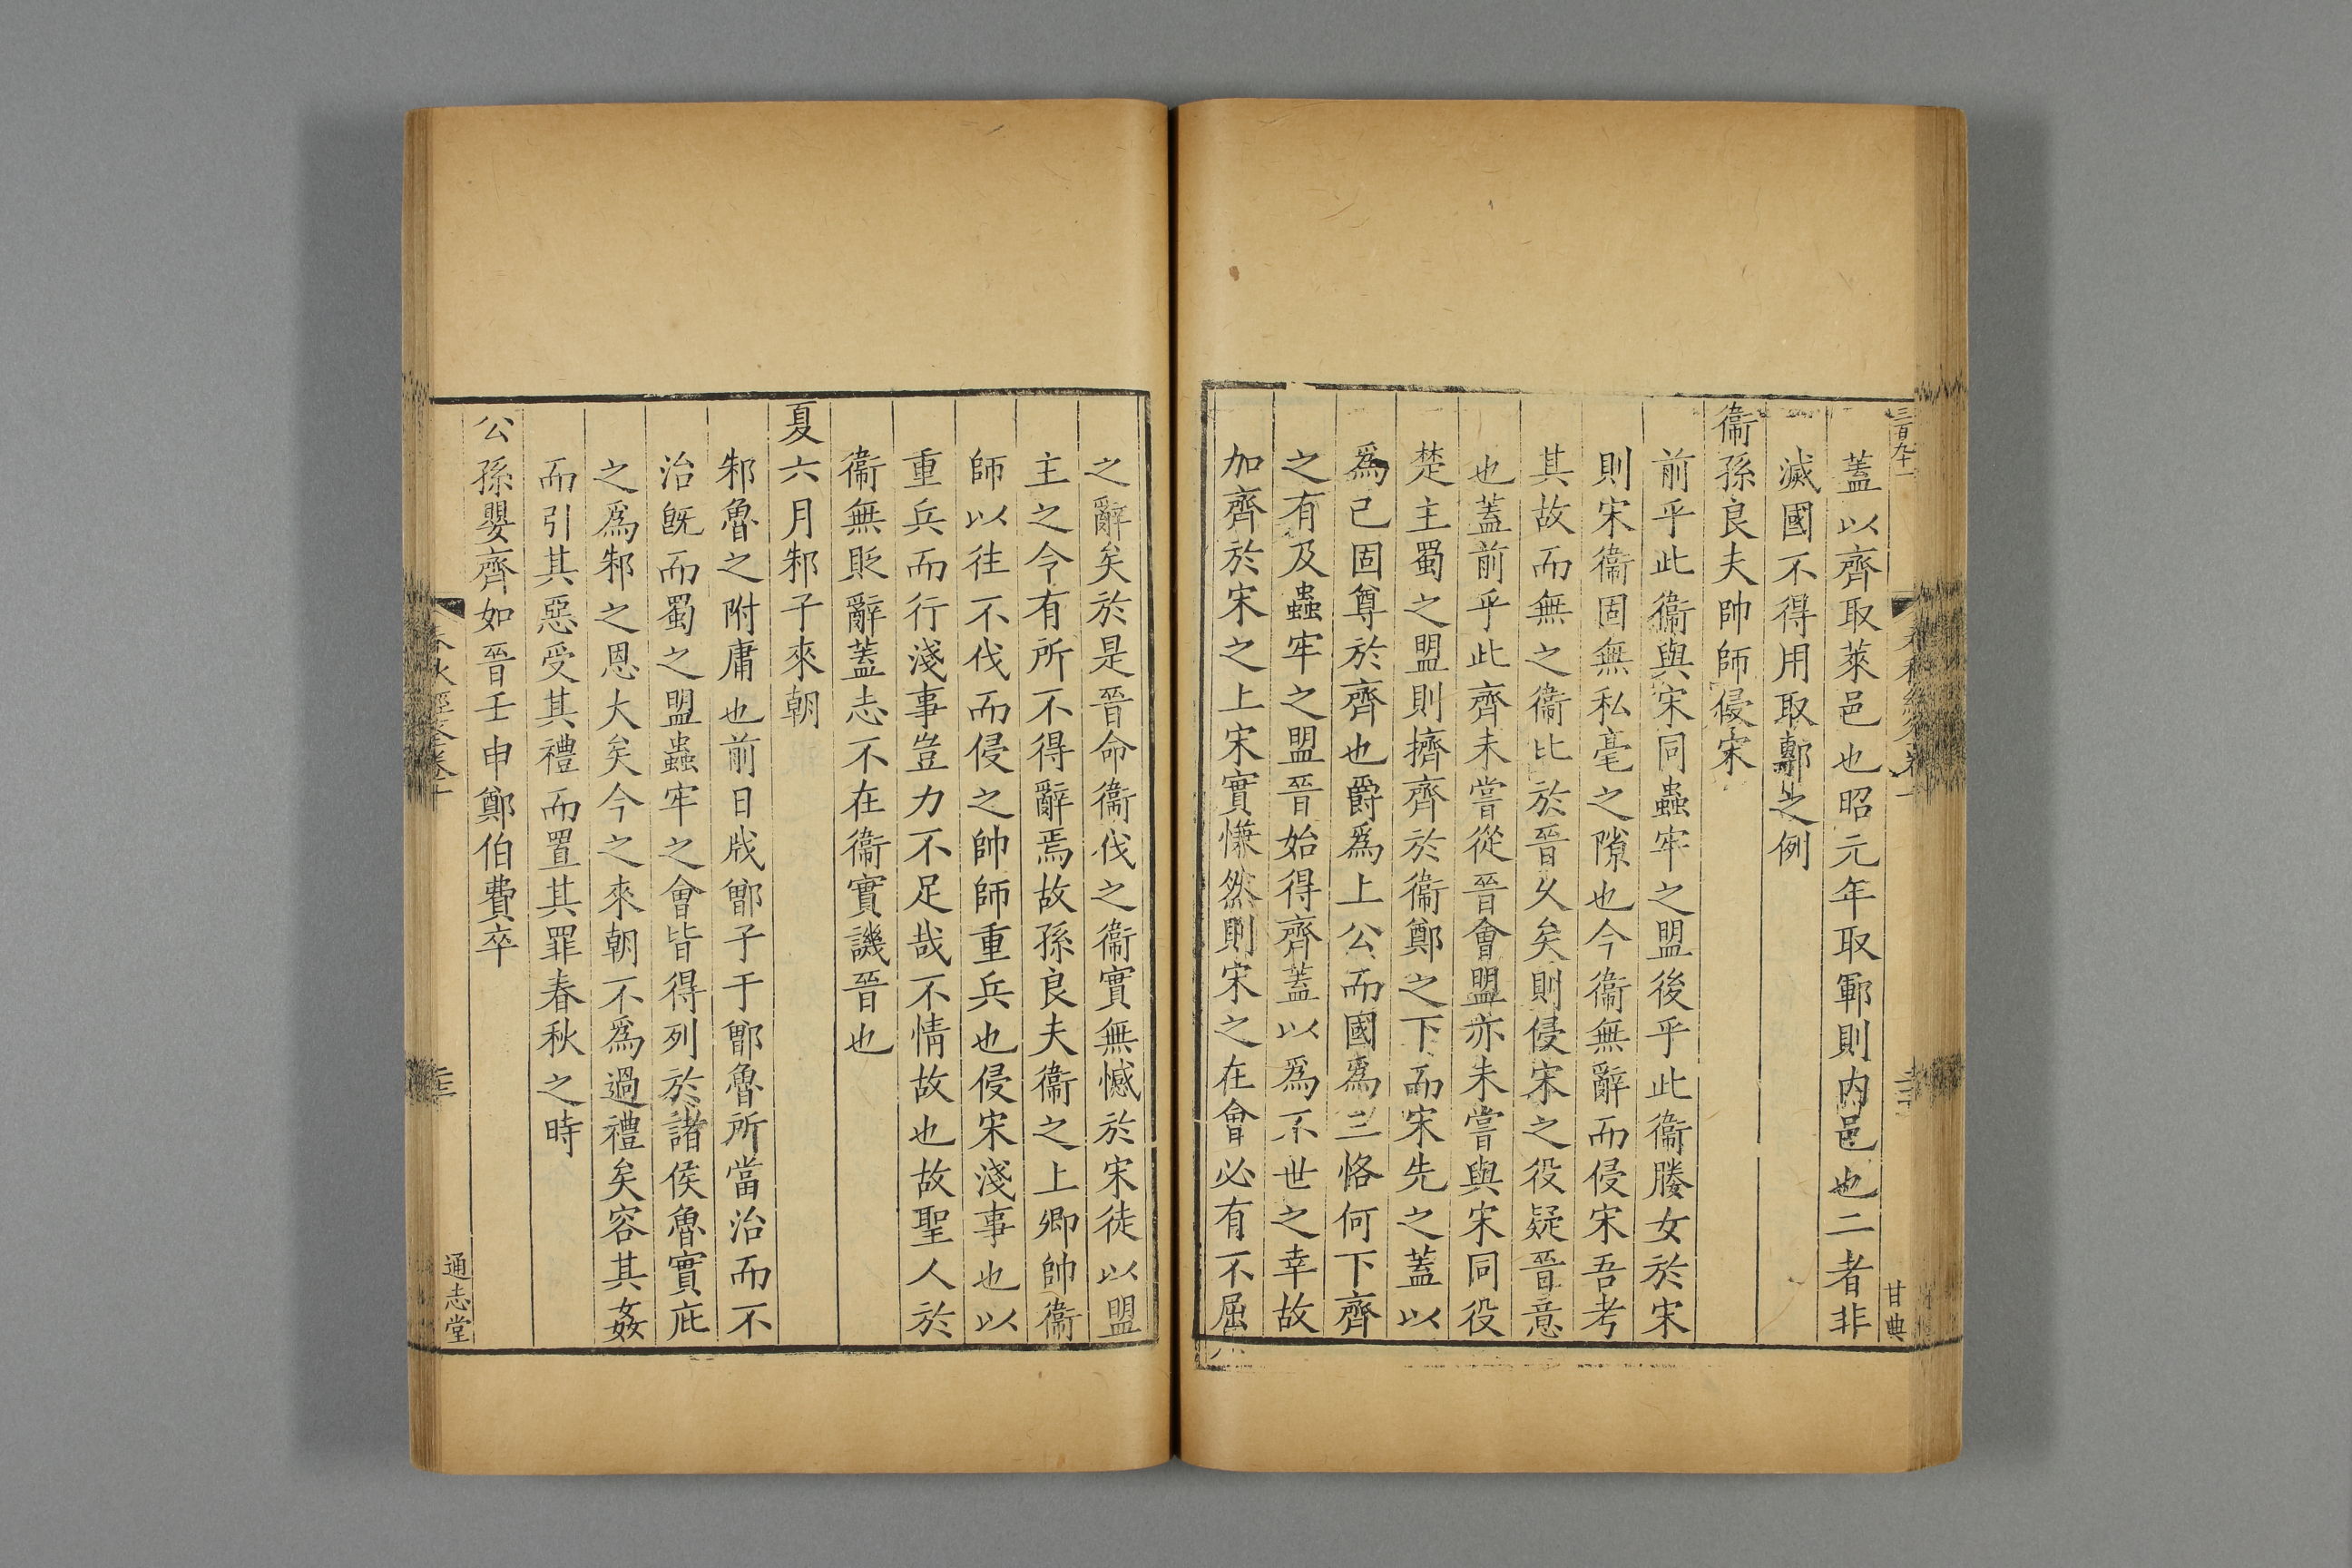 三百九十一
甘典
蓋以齊取萊邑也昭元年取鄆則内邑也二者非
滅國不得用取鄟之例
衞孫良夫帥師侵宋
前乎此衞與宋同蟲牢之盟後乎此衞媵女於宋
則宋衞固無私毫之隙也今衞無辭而侵宋吾考
其故而無之衞比於晉乆矣則侵宋之役疑晉意
也蓋前乎此齊未嘗從晉會盟亦未嘗與宋同役
楚主蜀之盟則擠齊於衞鄭之下而宋先之蓋以
爲己固尊於齊也爵爲上公而國爲三恪何下齊
之有及蟲牢之盟晉始得齊蓋以爲不世之幸故
加齊於宋之上宋實慊然則宋之在會必有不屈
之辭矣於是晉命衞伐之衞實無憾於宋徒以盟
主之令有所不得辭焉故孫良夫衞之上卿帥衞
師以往不伐而侵之帥師重兵也侵宋淺事也以
重兵而行淺事豈力不足哉不情故也故聖人於
衞無貶辭蓋志不在衞實譏晉也
夏六月邾子來朝
邾魯之附庸也前日戕鄫子于鄫魯所當治而不
治旣而蜀之盟蟲牢之會皆得列於諸侯魯實庇
之爲邾之恩大矣今之來朝不爲過禮矣容其姦
而引其惡受其禮而置其罪春秋之時
公孫嬰齊如晉壬申鄭伯費卒
通志堂